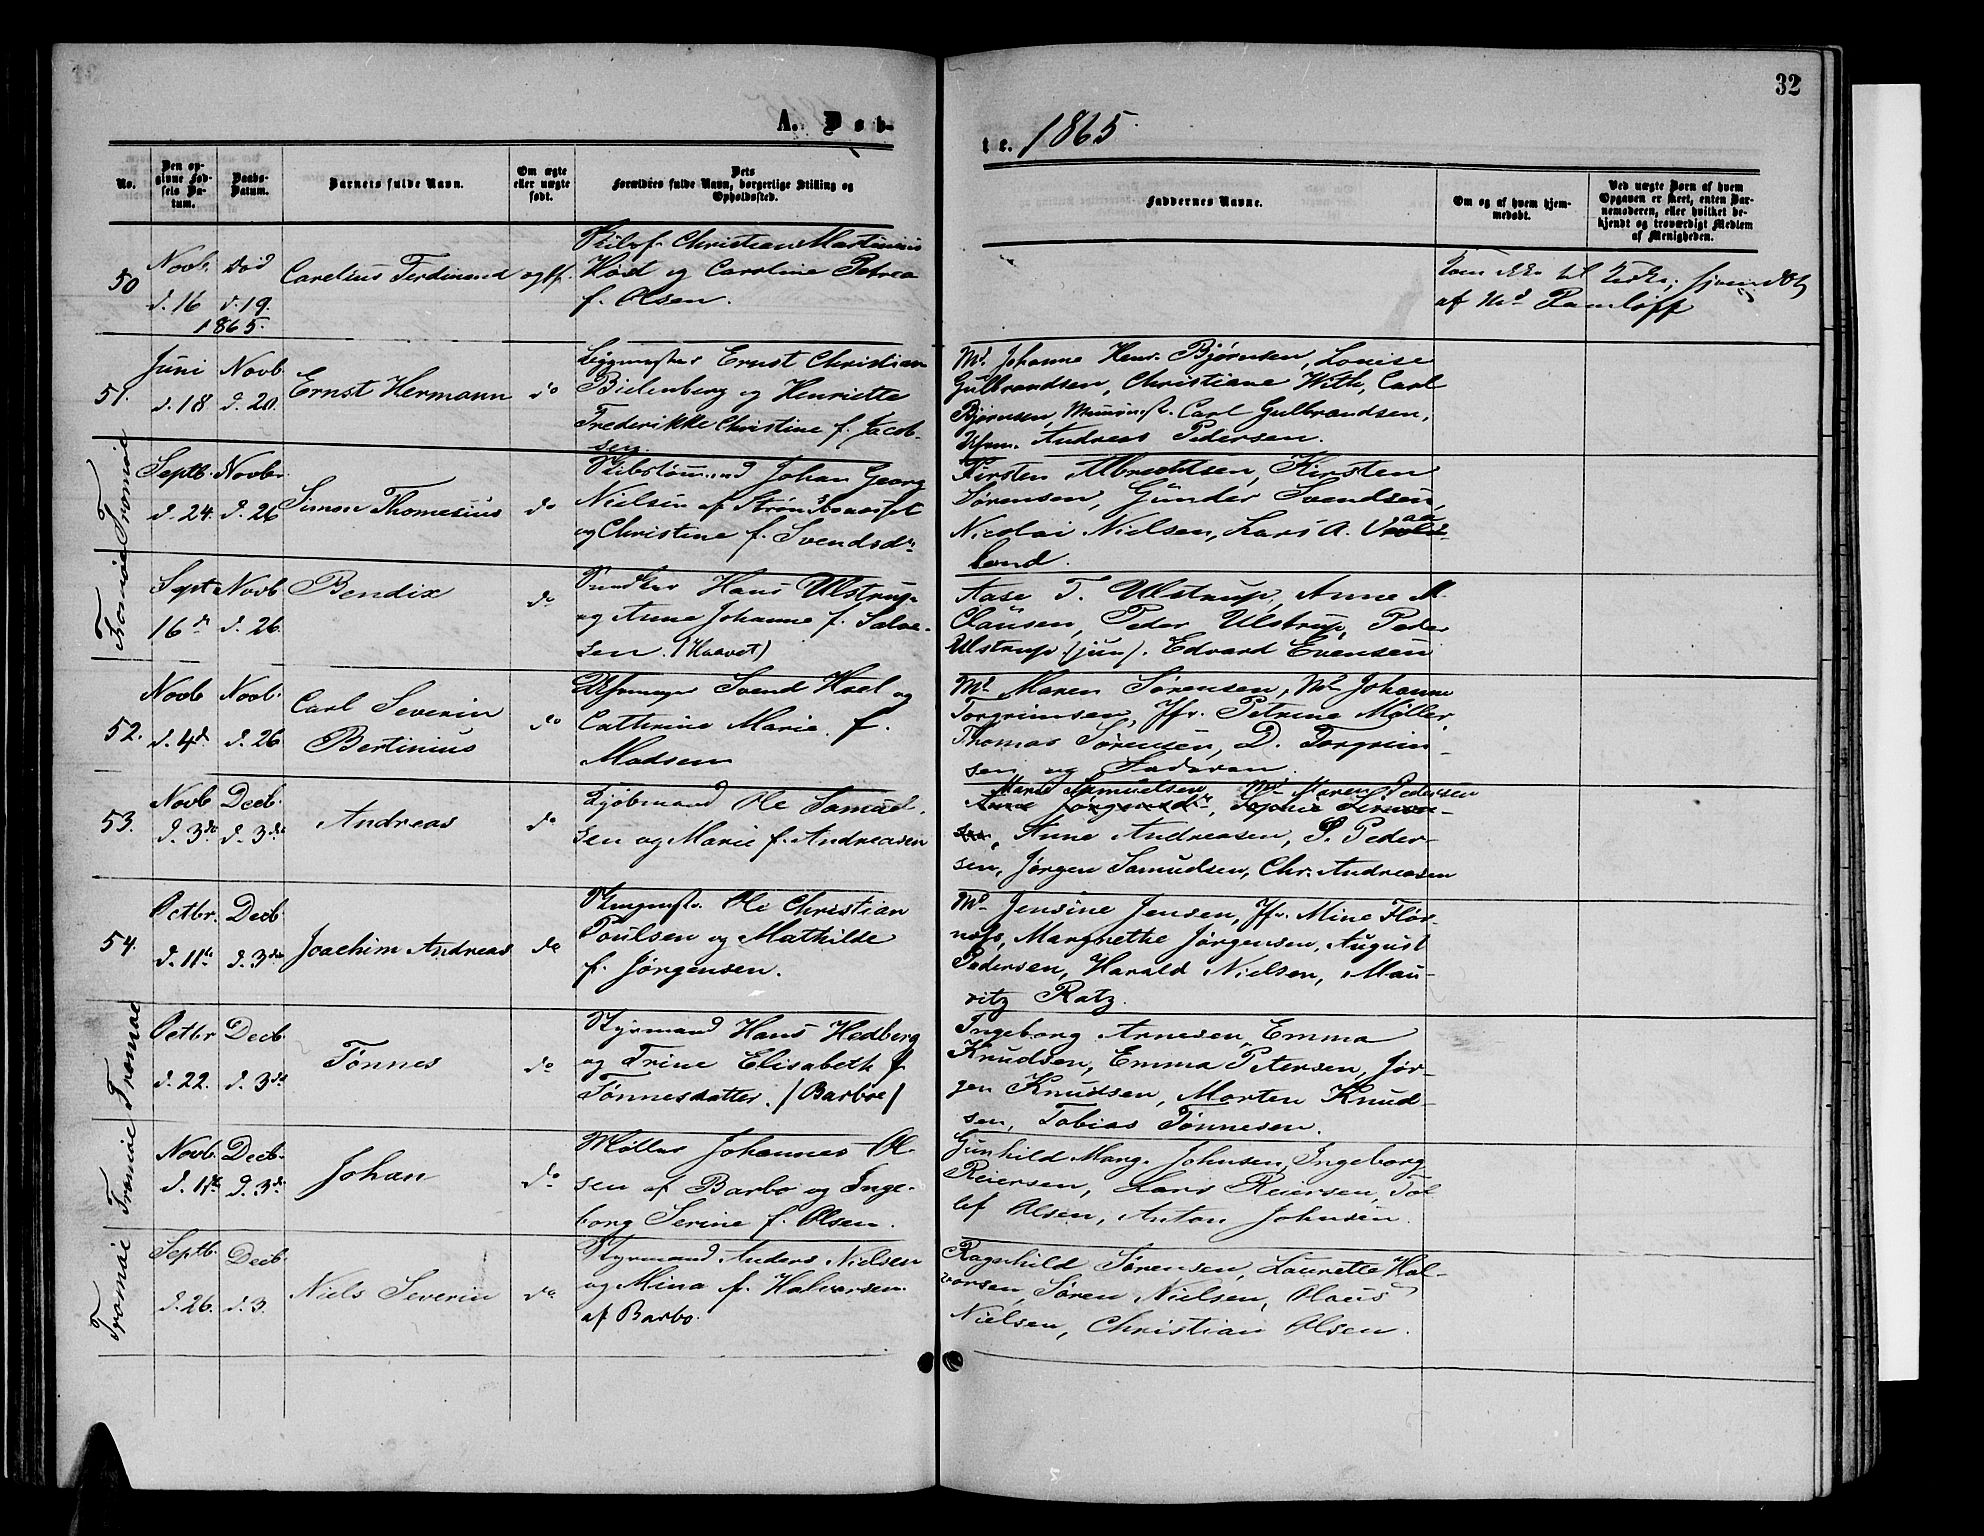 32
A. Døb-
te. 1865.
No.
Den op-
givne Fød-
sels Da-
tum.
Daabs-
Datum.
Barnets fulde Navn.
Om ægte
eller uægte
født.
Dets
Forældres fulde Navn, borgerlige Stilling og
Opholdssted.
Faddernes Navne.
Om og af hvem hjem-
medøbt.
Ved uægte Børn af hvem
Opgaven er skeet, enten Bar-
nemoderen, eller hvilket be-
kjendt og troværdigt Medlem
af Menigheden.
50
Novb.
d. 16
Død
d. 19.
1865.
Carelius Ferdinand
Christian Martinius
Høst og Caroline Petrea
f. Olsen.
Kom ikke til Kirke; hjemdøbt
af Md Ramløff
51.
Juni
d. 18
Novb.
d. 20.
Ernst Hermann
do
Ernst Christian
Bielenberg og Henriette
Frederikke Christine f. Jacob-
sen.
Md. Johanne Henr. Bjørnsen, Louise
Gulbrandsen, Christiane With, Carl
Bjørnsen, Carl Gulbrandsen,
Andreas Pedersen.
Tromøe
Septb.
d. 24.
Novbr.
d. 26
Simon Thomesius
do
Johan Georg
Nielsen af
og Christine f. Svendsdr
Kirsten Albrechtsen, Kirsten
Sørensen, Gunder Svendsen,
Nicolai Nielsen, Lars A.
land.
Tromøe
Sept
16de
Novb
d. 26.
Bendix
do
Hans Ulstrup
og Anna Johanne f. Salve-
sen. (Haavet)
Aase T. Ulstrup, Anne M.
Clausen, Peder Ulstrup, Peder
Ulstrup (jun). Edvard Evensen
52.
Novb
d. 4de
Novb.
d. 26
Carl Severin
Bertinius
do
Svend Hoel og
Cathrine Marie f.
Madsen
Md Maren Sørensen, Md Johanne
Torgrimsen, Jfr. Petrine Møller,
Thomas Sørensen, D. Torgrim-
sen og Faderen.
53.
Novb
d. 3de
Decb.
d. 3de
Andreas
do
Kjøbmand Ole Samuel-
sen og Marie f. Andreasen
Marie Samuelsen, Md Maren Pedersen
Anne Andreasen, S. Peder-
sen, Jørgen Samuelsen, Chr. Andreasen
54.
Octbr.
d. 11te
Decb
d. 3de
Joachim Andreas
do
Ole Christian
Poulsen og Mathilde
f. Jørgensen.
Md. Jensine Jensen, Jfr. Mine Flør-
næs, Margrethe Jørgensen, August
Pedersen, Harald Nielsen, Mau-
ritz Ratz.
Tromøe
Octbr
d. 22.
Decb
d. 3de
Tønnes
do
Styrmand Hans Hedberg
og Trine Elisabeth f.
Tønnesdatter. (Barboe)
Ingeborg Arnesen, Emma
Knudsen, Emma Petersen, Jør-
gen Knudsen, Morten Knud-
sen, Tobias Tønnesen.
Tromøe
Novb.
d. 11te
Decb.
d. 3de
Johan
do
Møller Johannes Ol-
sen af Barbo og Inge-
borg Serine f. Olsen.
Gunhild Marg. Johnsen, Ingeborg
Reiersen, Lars Reiersen, Tol-
lef Olsen, Anton Johnsen.
Tromøe
Septb.
d. 26.
Decb.
d. 3.
Niels Severin
do
Styrmand Anders Nielsen
og Mina f. Halvorsen
af Barbo.
Ragnhild Sørensen, Laurette Hal-
vorsen, Søren Nielsen, Claus
Nielsen, Christian Olsen.